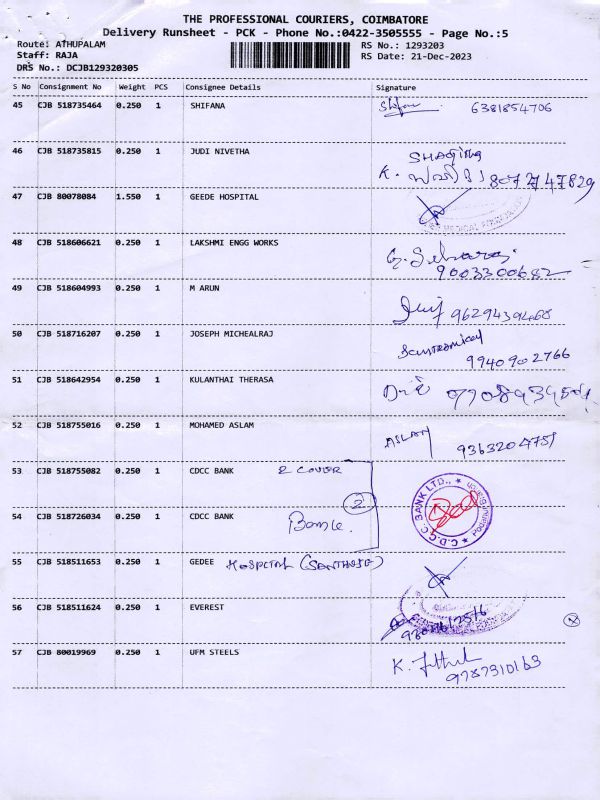 THE PROFESSIONAL COURIERS, COIMBATORE
Delivery Runsheet - PCK - Phone No.:0422-3505555 - Page No.:5
Route: ATHUPALAM
Staff: RAJA
DRS No.: DCJB129320305
RS No.: 1293203
RS Date: 21-Dec-2023
S No Consignment No Weight PCS Consignee Details Signature
45 CJB 518735464 0.250 1 SHIFANA 6381854706
46 CJB 518735815 0.250 1 JUDI NIVETHA
K. 8072747829
47 CJB 80078084 1.550 1 GEEDE HOSPITAL
48 CJB 518606621 0.250 1 LAKSHMI ENGG WORKS
9003300682
49 CJB 518604993 0.250 1 M ARUN 9629439468
50 CJB 518716207 0.250 1 JOSEPH MICHEALRAJ
9940902766
51 CJB 518642954 0.250 1 KULANTHAI THERASA
52 CJB 518755016 0.250 1 MOHAMED ASLAM ASLAM 9363204751
53 CJB 518755082 0.250 1 CDCC BANK 2 COVER
2
54 CJB 518726034 0.250 1 CDCC BANK Bank
C.D.C.C. BANK LTD.,
55 CJB 518511653 0.250 1 GEDEE HOSPITAL
56 CJB 518511624 0.250 1 EVEREST
57 CJB 80019969 0.250 1 UFM STEELS K.
9787310163